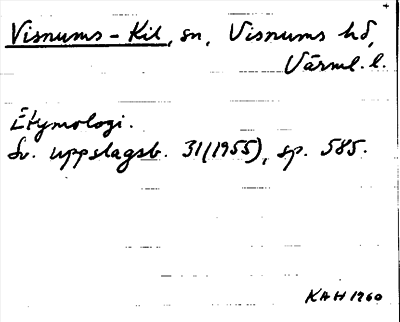 +
Visnums-Kil, sn, Visnums hd,
Värml. l.
Etymologi.
Sv. uppslagsb. 31(1955), sp. 585.
KAH 1960